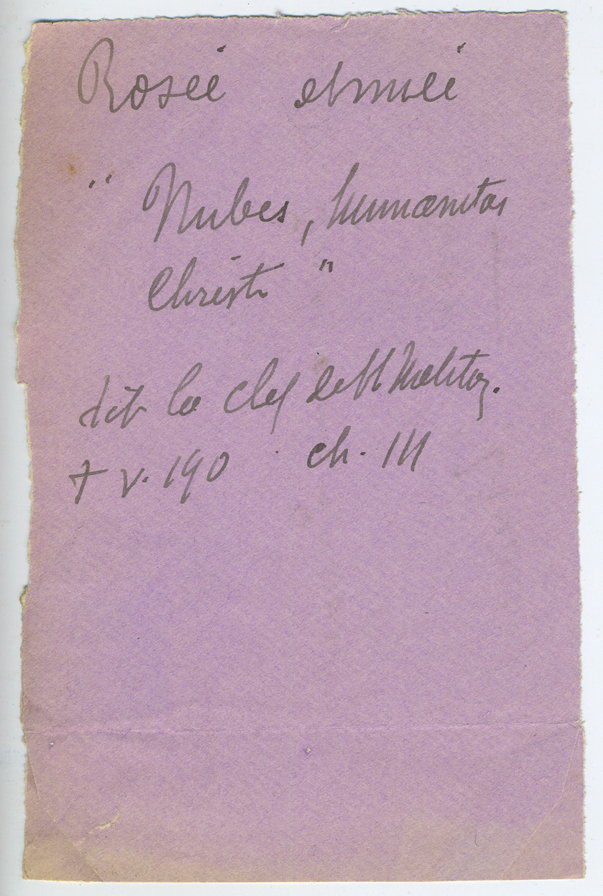 Rosée et nuée
" Nubes, humanitas
Christi "
dit la clef de St Meliton.
† v. 190 ch. III